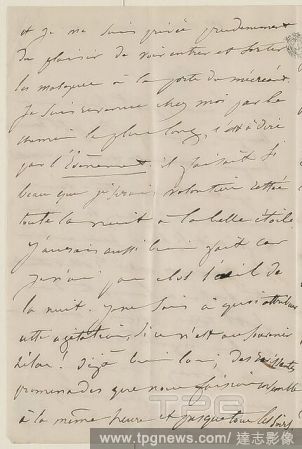 et je me suis privée prudemment
du plaisir de voir entrer et sortir
les masques à la porte du
Je suis revenue chez moi par le
chemin le plus long, c'est à dire
par l' il faisait si
beau que j'aurais volontiers
toute la nuit à la belle étoile
J'aurais aussi bien fait car
je n'ai pas clos l'œil de
la nuit. Je ne sais à quoi attribuer
cette agitation, si ce n'est au souvenir
hélas! déjà bien loin, des
promenades que nous faisions ensemble
à la même heure et presque tous les soirs
TPG
www.tpgnews.com/達志影像